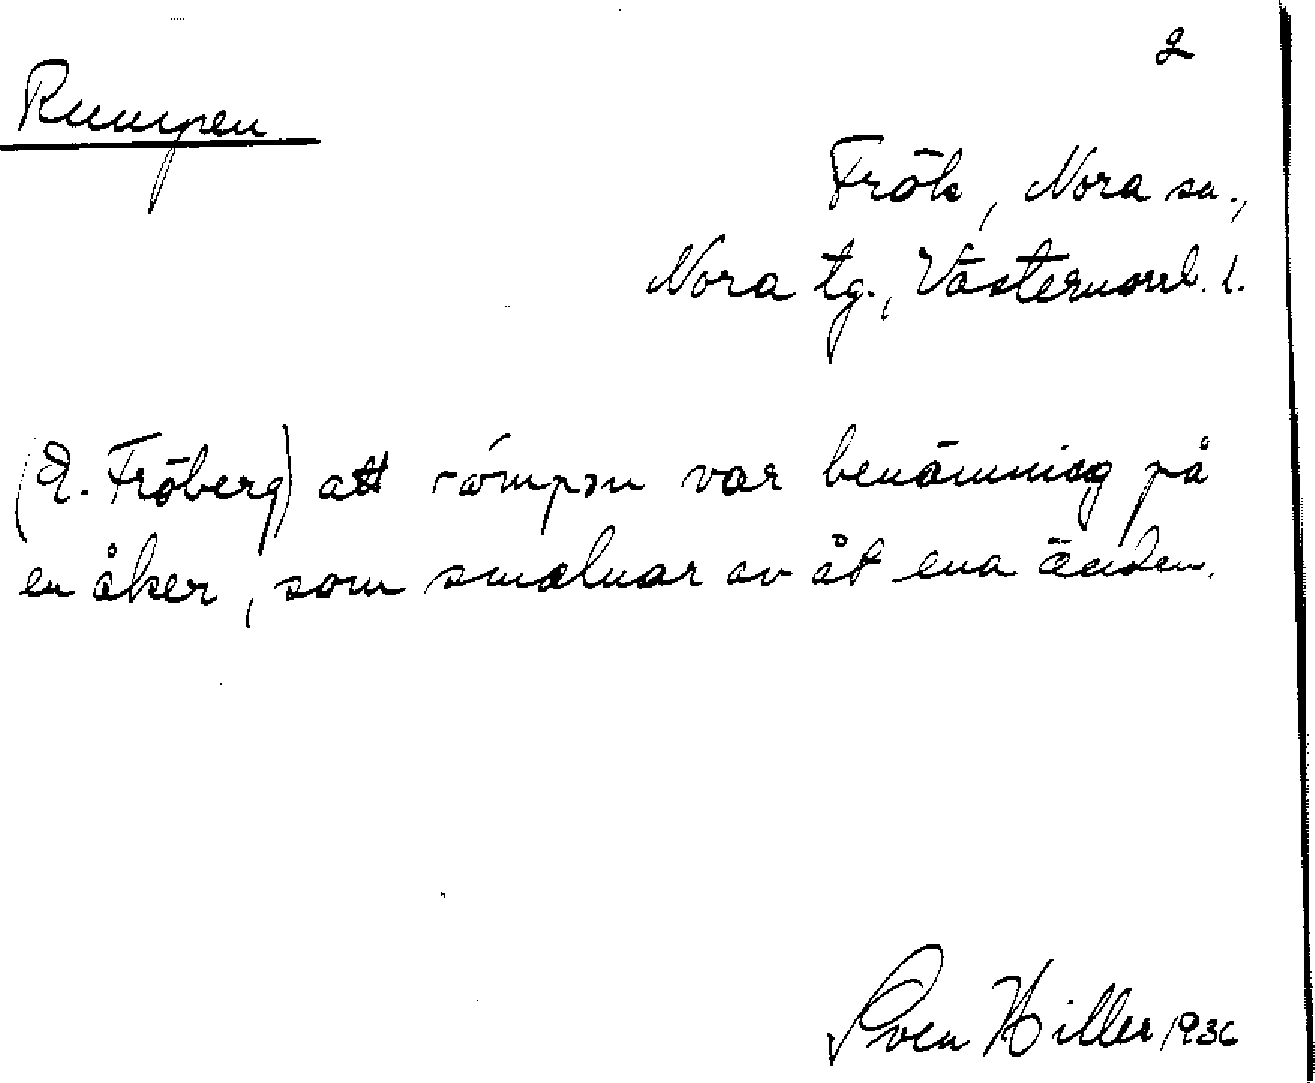 2
Rumpen
Frök, Nora sn.,
Nora tg., Västernorrl. l.
(E. Fröberg) att rómpən var benämning på
en åker, som smalnar av åt ena änden.
Sven Hiller 1936